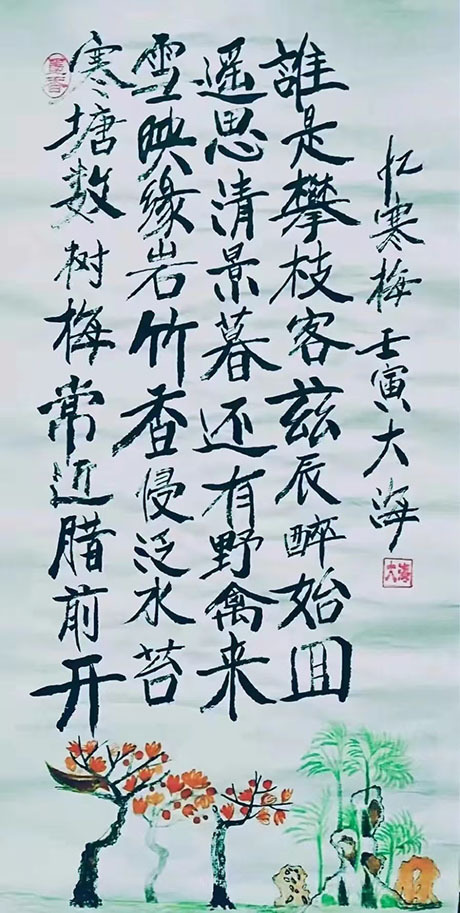 寒塘数树梅常近腊前开
雪映缘岩竹香侵泛水苔
遥思清景暮还有野禽来
誰是攀枝客兹辰醉始囬
忆寒梅壬寅大海
大海